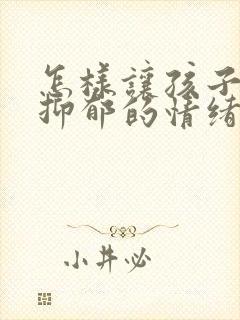 怎樣讓孩子
抑郁的情緒
小井必